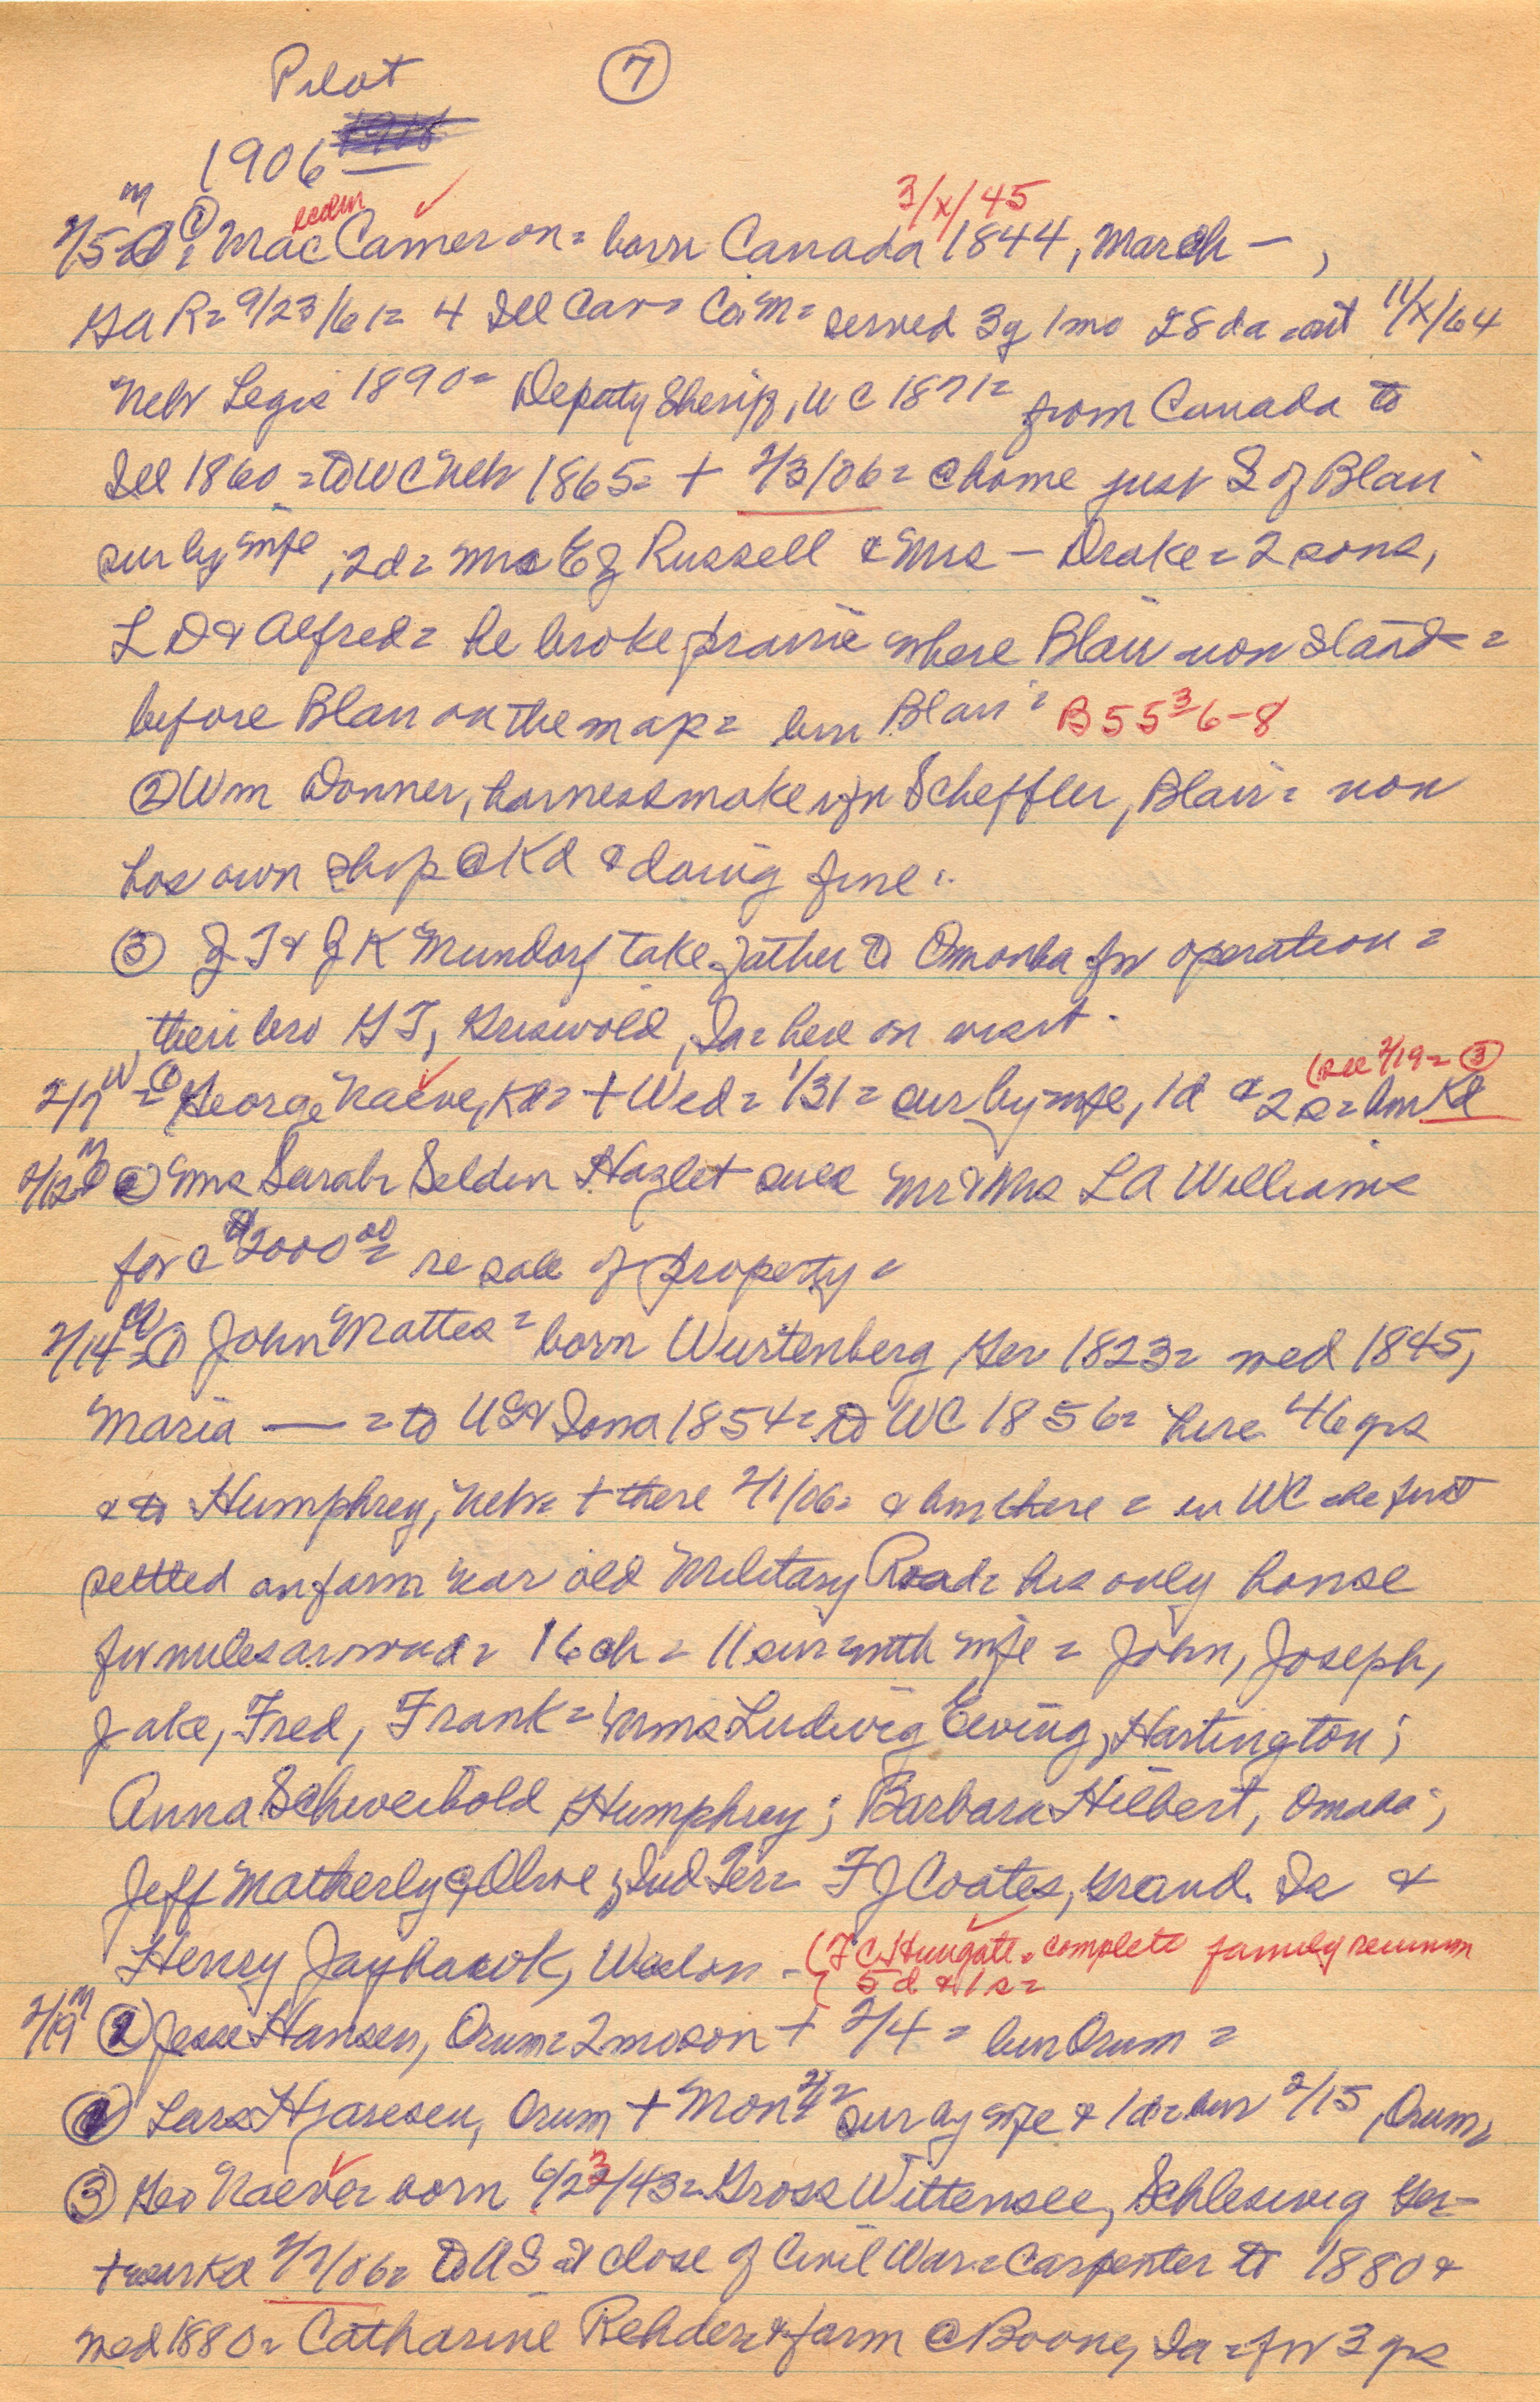 Pilot ⑦
1906
3/x/45
2/5 M ① Mac Cameron = born Canada 1844, March — ,
GAR = 9/23/61 = 4 Ill Cav = Co M = served 3y 1mo 28 da = out 11/x/64
Nebr Legis 1890 = Deputy Sheriff, WC 1871 = from Canada to
Ill 1860 = to WC Nebr 1865 = + 2/3/06 = @ home just S of Blair
sur by wife, 2d = Mrs E J Russell & Mrs — Drake = 2 sons,
L D & Alfred = he broke prairie where Blair now stands =
before Blair on the map = bur Blair = B 55 3 6-8
② Wm Donner, harnessmaker for Scheffler, Blair = now
has own shop @ Kd & doing fine =
③ J T & J K Mundorf take father to Omaha for operation =
their bro G T, Griswold, Ia = here on visit.
(see 2/19 = ③
2/7 W = ① George Naeve, Kd = + Wed = 1/31 = sur by wife, 1d & 2s = bur Kd
2/12 M Mrs Sarah Selden Hazlet sues Mr & Mrs L A Williams
for $2000.00 = re sale of property =
2/14 W ① John Mattes = born Wurtenberg, Ger 1823 = wed 1845,
Maria — = to US & Iowa 1854 = to WC 1856 = here 46 yrs
& to Humphrey, Nebr = + there 2/1/06 = & bur there = in WC he first
settled on farm near old Military Road = his only house
for miles around = 16 ch = 11 sur with wife = John, Joseph,
Jake, Fred, Frank = Mms Ludwig Ewing, Hartington;
Anna Schweibold Humphrey; Barbara Hilbert, Omaha;
Jeff Matherly @ Olive, Ind Ter = F J Coates, Grand Is &
Henry Jayhawk, -
(F C Hungate = complete family reunion
5 d & 1 s =
2/19 M ① Jesse Hansen, Orum = 2 mo son + 2/4 = bur Orum =
② Lars Hjaresen, Orum + Mon 2/12 = sur by wife & 1d = bur 2/15, Orum =
③ Geo Naeve = born 6/23/43 = Gross Wittensee, Schleswig Ger =
+ near Kd 2/1/06 = to US at close of Civil War = Carpenter to 1880 &
wed 1880 = Catharine Rehder = & farm @ Boone, Ia = for 3 yrs